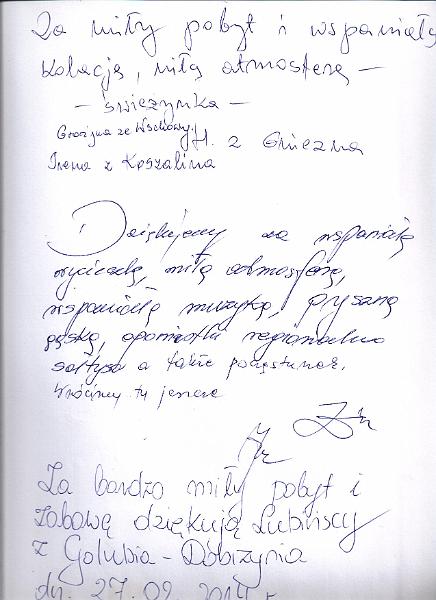 Za miły pobyt i wspaniałą
kolację, miłą atmosferę –
– świeżynka –
Grażyna ze Wschowy. H. z Gniezna
Irena z Koszalina
Dziękujemy za wspaniałą
wycieczkę, miłą atmosferę,
wspaniałą muzykę, pyszną
gąskę, opowieści regionalne
sołtysa a także poczęstunek.
Wrócimy tu jeszcze
Za bardzo miły pobyt i
zabawę dziękują Lubińscy
z Golubia-Dobrzynia
dn. 27.09.2014 r